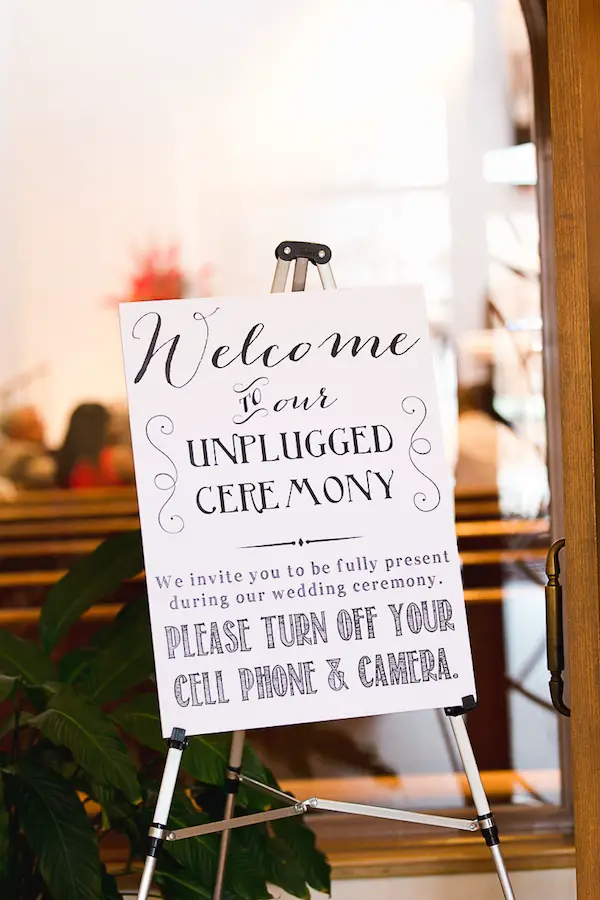 Welcome
TO our
UNPLUGGED
CEREMONY
We invite you to be fully present
during our wedding ceremony.
PLEASE TURN OFF YOUR
CELL PHONE & CAMERA.